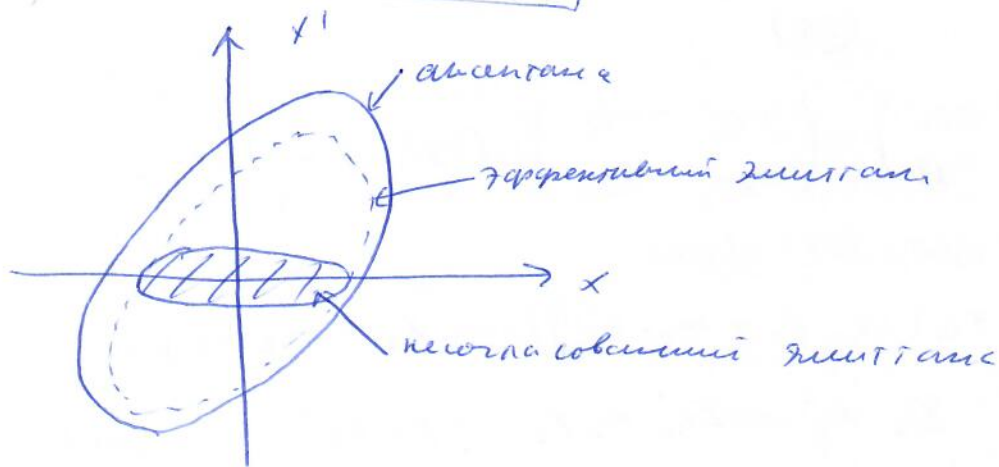 x'
аксептанс
эффективный эмиттанс
x
несогласованный эмиттанс